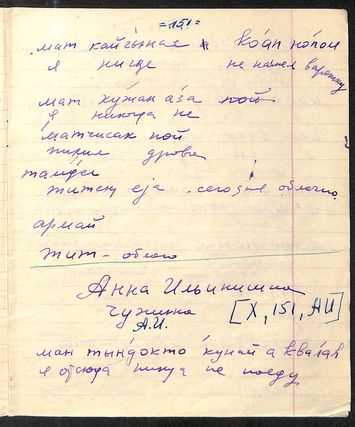 =151=
мат кайгынат коап нопои
я нигде не нашел варежку
мат кужан аза пой
я никогда не
матчисак пой
пирил дрова
тандел
титеу еја - сегодня облачно
армай
тит - облако
Анна Ильинична
Чужина
А.И. [X, 151, АИ]
ман тындокто кунай а квалав
я отсюда никуда не поеду